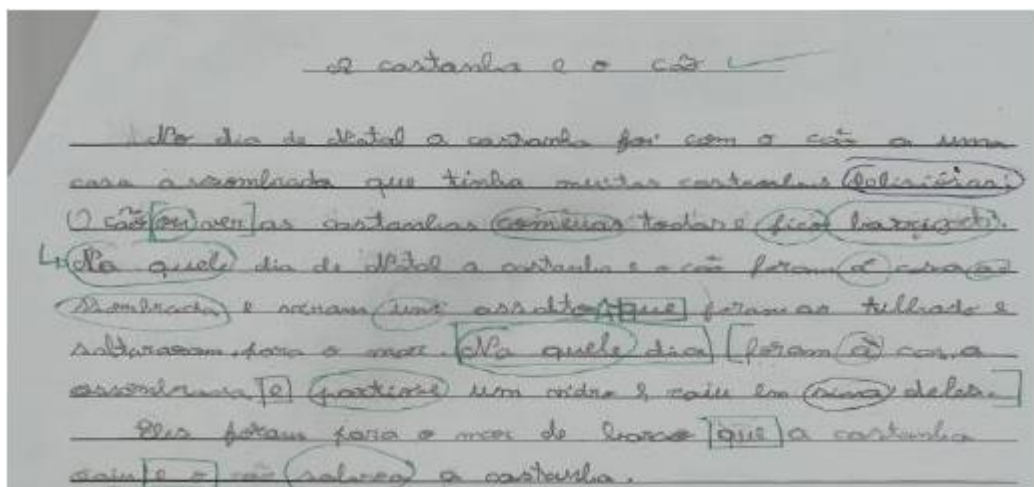 A castanha e o cão
No dia de Natal a castanha foi com o cão a uma
casa assombrada que tinha muitas castanhas
O cão ou ver as castanhas comeuas todas e fico barrigudo.
Na quele dia de Natal a castanha e o cão foram á casa as
sombrada e viram um assalto que foram ao tulhado e
saltaram para o mar. Na quele dia foram á casa
e partiose um vidro e caiu em sima deles.
Eles foram para o mar de barco que a castanha
caiu e o cão salvou a castanha.